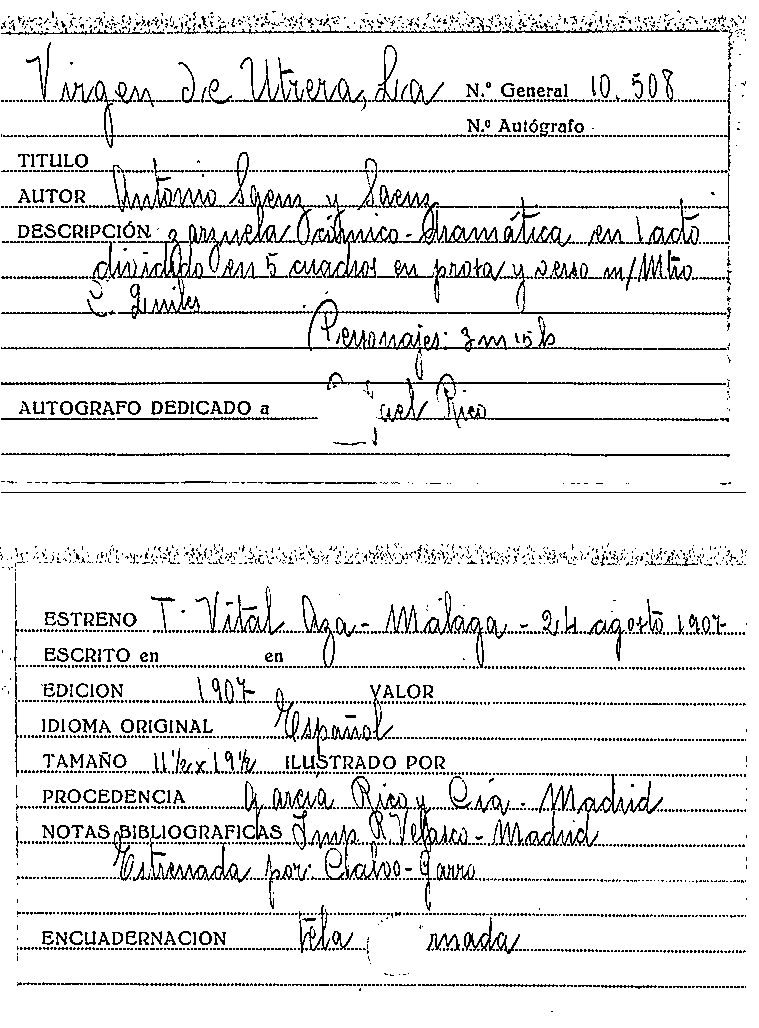 Virgen de Utrera, La N.º General 10.508
N.º Autógrafo
TITULO
AUTOR Antonio Saenz y Saenz
DESCRIPCIÓN zarzuela cómico-dramática en 1 acto
dividido en 5 cuadros en prosa y verso m/Mtro
C.
Personajes: 3 m 15 h
AUTOGRAFO DEDICADO a Rico
ESTRENO T. Vital Aza - Málaga - 24 agosto 1907
ESCRITO en en
EDICION 1907 VALOR
IDIOMA ORIGINAL Español
TAMAÑO 11½ x 19½ ILUSTRADO POR
PROCEDENCIA García Rico y Cía - Madrid
NOTAS BIBLIOGRAFICAS Imp. R. Velasco - Madrid
Estrenada por: Calvo-Garro
ENCUADERNACION Tela